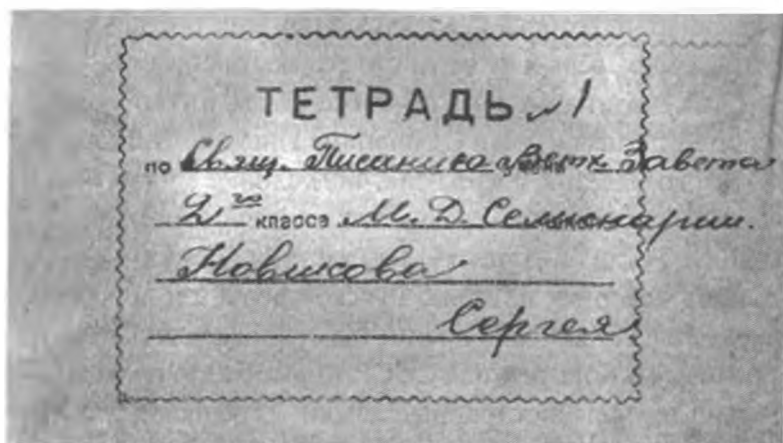 ТЕТРАДЬ №1
по Свящ. Писанию Ветх. Завета
2го класса М. Д. Семинарии.
Новикова
Сергея